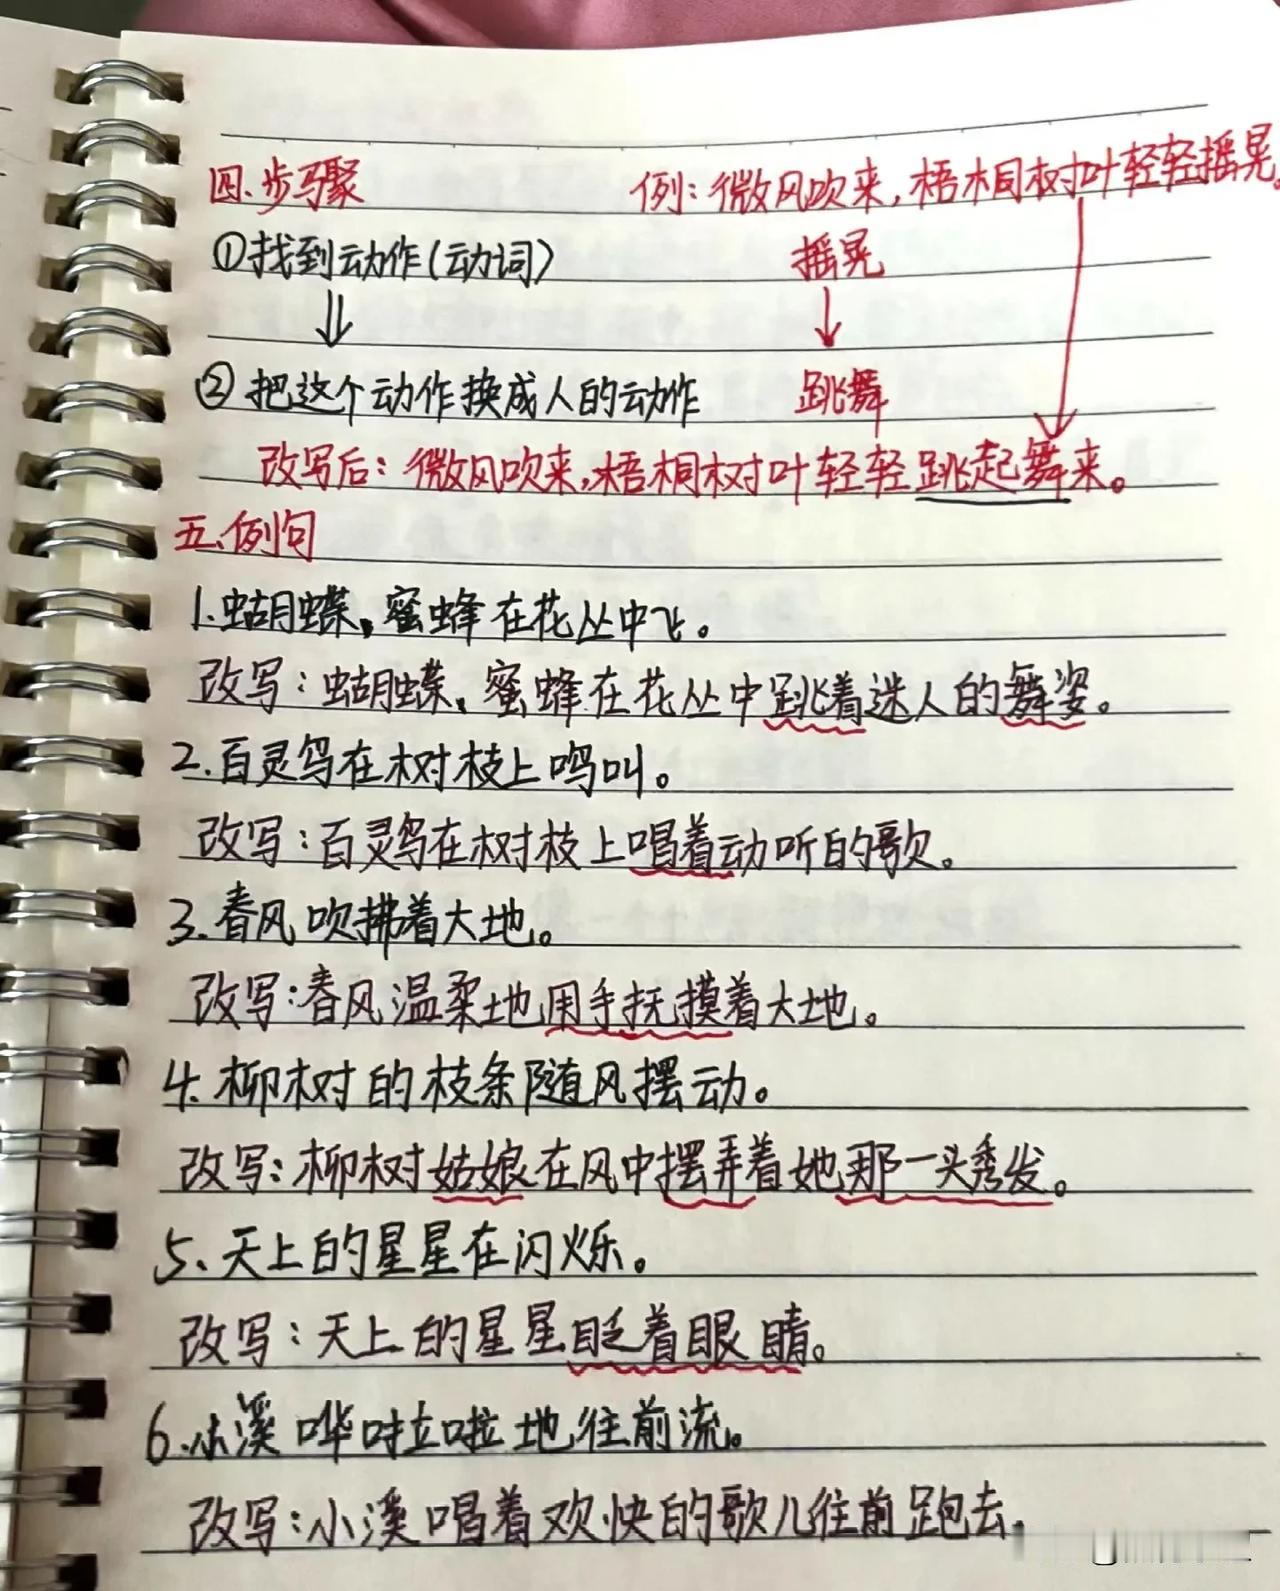 四.步骤 例:微风吹来,梧桐树叶轻轻摇晃。
①找到动作(动词) 摇晃
②把这个动作换成人的动作 跳舞
改写后:微风吹来,梧桐树叶轻轻跳起舞来。
五.例句
1.蝴蝶、蜜蜂在花丛中飞。
改写:蝴蝶、蜜蜂在花丛中跳着迷人的舞姿。
2.百灵鸟在树枝上鸣叫。
改写:百灵鸟在树枝上唱着动听的歌。
3.春风吹拂着大地。
改写:春风温柔地用手抚摸着大地。
4.柳树的枝条随风摆动。
改写:柳树姑娘在风中摆弄着她那一头秀发。
5、天上的星星在闪烁。
改写:天上的星星眨着眼睛。
6.小溪哗啦啦地往前流。
改写:小溪唱着欢快的歌儿往前跑去.